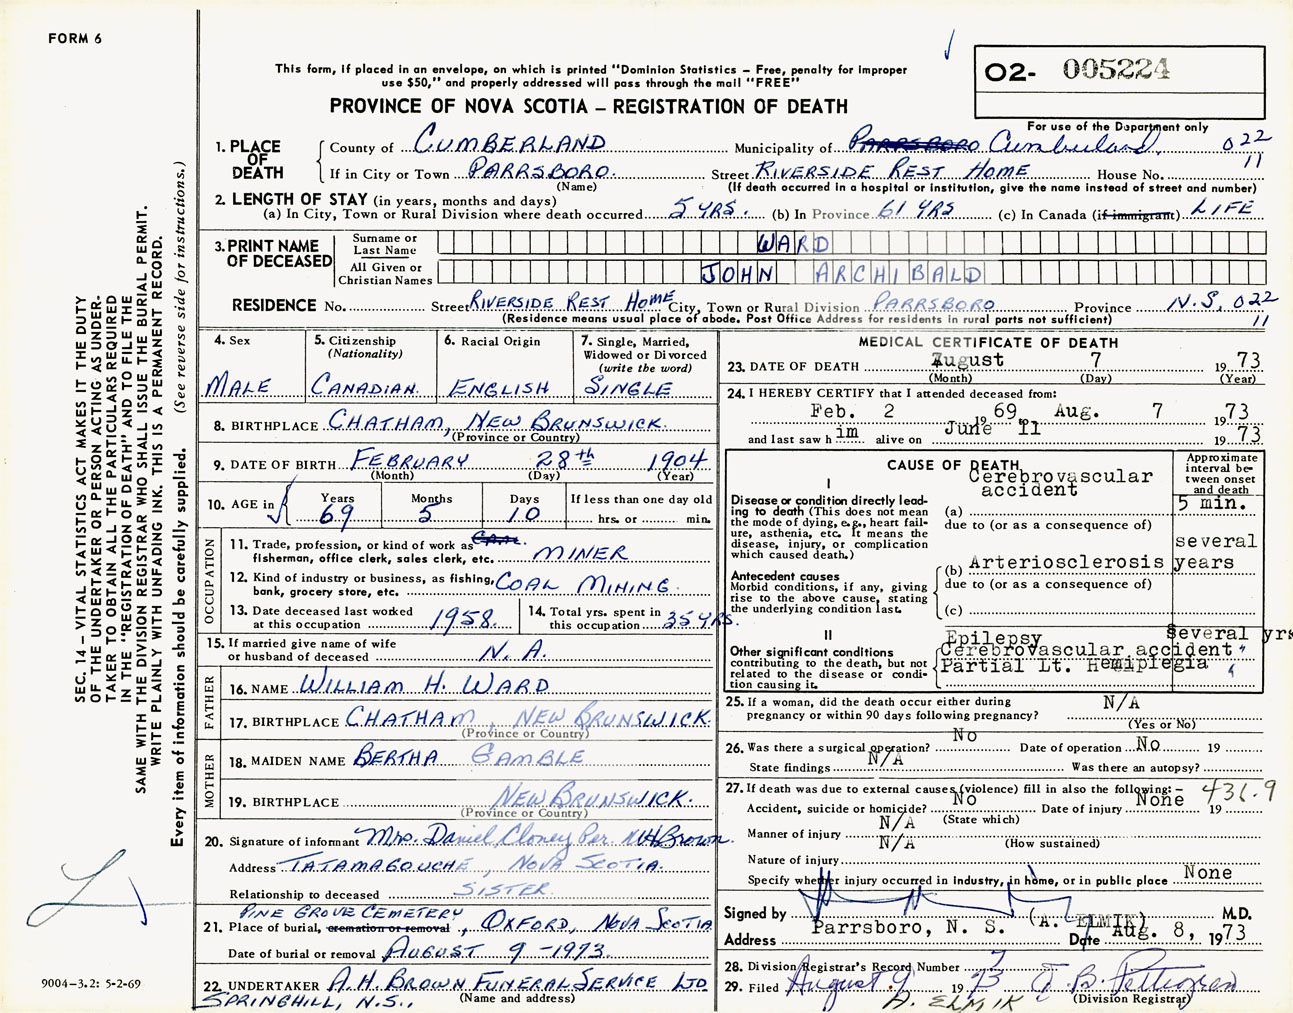 FORM 6
This form, if placed in an envelope, on which is printed "Dominion Statistics – Free, penalty for improper
use $50," and properly addressed will pass through the mail "FREE"
O2- 005224
PROVINCE OF NOVA SCOTIA – REGISTRATION OF DEATH
For use of the Department only
1. PLACE OF DEATH
County of CUMBERLAND Municipality of PARRSBORO Cumberland. 022
If in City or Town PARRSBORO Street RIVERSIDE REST HOME House No. 11
(Name) (If death occurred in a hospital or institution, give the name instead of street and number)
2. LENGTH OF STAY (in years, months and days)
(a) In City, Town or Rural Division where death occurred 5 YRS. (b) In Province 61 YRS (c) In Canada (if immigrant) LIFE
3. PRINT NAME OF DECEASED
Surname or Last Name WARD
All Given or Christian Names JOHN ARCHIBALD
RESIDENCE No. Street RIVERSIDE REST HOME City, Town or Rural Division PARRSBORO Province N.S. 022
(Residence means usual place of abode. Post Office Address for residents in rural parts not sufficient) 11
4. Sex
MALE
5. Citizenship
(Nationality)
CANADIAN.
6. Racial Origin
ENGLISH
7. Single, Married,
Widowed or Divorced
(write the word)
SINGLE
8. BIRTHPLACE CHATHAM, NEW BRUNSWICK.
(Province or Country)
9. DATE OF BIRTH FEBRUARY 28th 1904
(Month) (Day) (Year)
10. AGE in Years Months Days If less than one day old
69 5 10 hrs. or min.
OCCUPATION
11. Trade, profession, or kind of work as
fisherman, office clerk, sales clerk, etc. MINER
12. Kind of industry or business, as fishing,
bank, grocery store, etc. COAL MINING.
13. Date deceased last worked
at this occupation 1958.
14. Total yrs. spent in
this occupation 35 YRS.
15. If married give name of wife
or husband of deceased N. A.
FATHER
16. NAME WILLIAM H. WARD
17. BIRTHPLACE CHATHAM, NEW BRUNSWICK.
(Province or Country)
MOTHER
18. MAIDEN NAME BERTHA GAMBLE
19. BIRTHPLACE NEW BRUNSWICK.
(Province or Country)
20. Signature of informant Mrs. Daniel Cloney Per. Brown.
Address TATAMAGOUCHE, NOVA SCOTIA.
Relationship to deceased SISTER
PINE GROVE CEMETERY
21. Place of burial, cremation or removal, OXFORD, NOVA SCOTIA
Date of burial or removal AUGUST 9 - 1973.
22. UNDERTAKER A.H. BROWN FUNERAL SERVICE LTD.
SPRINGHILL, N.S., (Name and address)
MEDICAL CERTIFICATE OF DEATH
23. DATE OF DEATH August 7 19 73
(Month) (Day) (Year)
24. I HEREBY CERTIFY that I attended deceased from:
Feb. 2 19 69, Aug. 7 19 73
and last saw h im alive on June 11 19 73
CAUSE OF DEATH
Approximate
interval be-
tween onset
and death
I
Disease or condition directly lead-
ing to death (This does not mean
the mode of dying, e.g., heart fail-
ure, asthenia, etc. It means the
disease, injury, or complication
which caused death.)
(a) Cerebrovascular accident 5 min.
due to (or as a consequence of)
Antecedent causes
Morbid conditions, if any, giving
rise to the above cause, stating
the underlying condition last.
(b) Arteriosclerosis several years
due to (or as a consequence of)
(c)
II
Other significant conditions
contributing to the death, but not
related to the disease or condi-
tion causing it.
Epilepsy Several yrs
Cerebrovascular accident "
Partial Lt. Hemiplegia "
25. If a woman, did the death occur either during
pregnancy or within 90 days following pregnancy? N/A
(Yes or No)
26. Was there a surgical operation? No Date of operation No 19
State findings N/A Was there an autopsy?
27. If death was due to external causes (violence) fill in also the following: – 431.9
Accident, suicide or homicide? No Date of injury None 19
(State which)
Manner of injury N/A (How sustained)
Nature of injury N/A
Specify whether injury occurred in industry, in home, or in public place None
Signed by (A. ELMIK) M.D.
Address Parrsboro, N. S. Date Aug. 8, 1973
28. Division Registrar's Record Number 7
29. Filed August 9 1973
(Division Registrar)
A. ELMIK
SEC. 14 – VITAL STATISTICS ACT MAKES IT THE DUTY
OF THE UNDERTAKER OR PERSON ACTING AS UNDER-
TAKER TO OBTAIN ALL THE PARTICULARS REQUIRED
IN THE "REGISTRATION OF DEATH" AND TO FILE THE
SAME WITH THE DIVISION REGISTRAR WHO SHALL ISSUE THE BURIAL PERMIT.
WRITE PLAINLY WITH UNFADING INK. THIS IS A PERMANENT RECORD.
Every item of information should be carefully supplied. (See reverse side for instructions.)
9004-3.2: 5-2-69